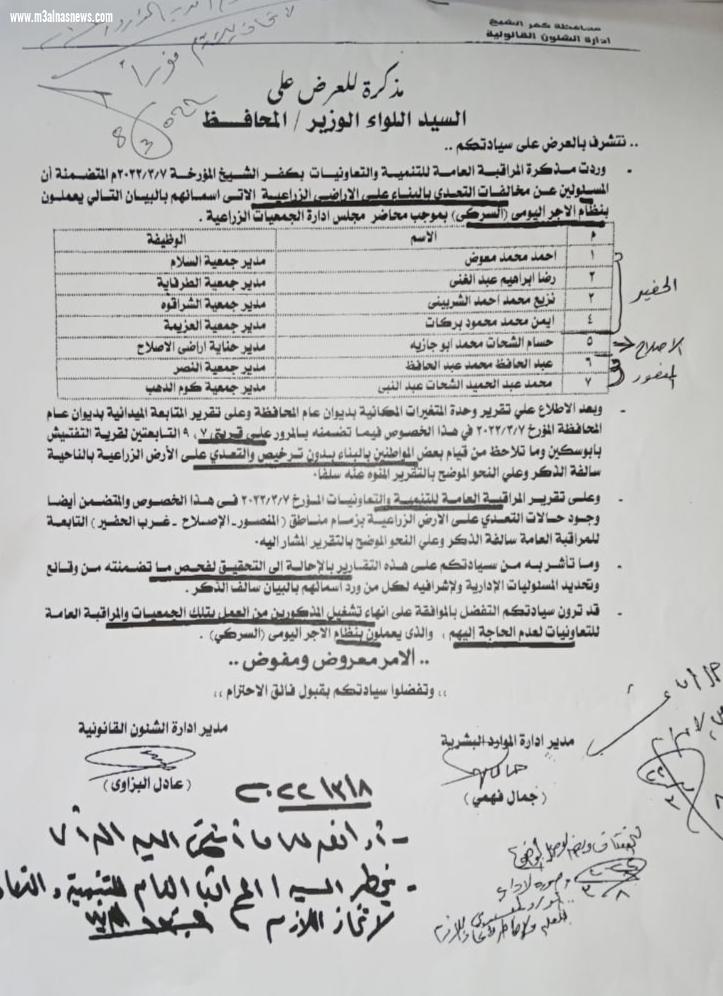 www.m3alnasnews.com
محافظة كفر الشيخ
ادارة الشئون القانونية
فوراً
مذكرة للعرض على
السيد اللواء الوزير / المحافـظ
.. نتشرف بالعرض على سيادتكم ..
- وردت مذكرة المراقبة العامة للتنمية والتعاونيات بكفر الشيخ المؤرخة ٢٠٢٢/٣/٧م المتضمنة أن
المسئولين عن مخالفات التعدي بالبناء على الاراضي الزراعية الاتى اسمائهم بالبيان التالي يعملون
بنظام الاجر اليومى (السركى) بموجب محاضر مجلس ادارة الجمعيات الزراعية .
م الاسم الوظيفة
١ احمد محمد معوض مدير جمعية السلام
٢ رضا ابراهيم عبد الغنى مدير جمعية الطرفاية
٣ نزيع محمد احمد الشربينى مدير جمعية الشراقوه
٤ ايمن محمد محمود بركات مدير جمعية العزيمة
٥ حسام الشحات محمد ابو جازيه مدير جناية اراضى الاصلاح
٦ عبد الحافظ محمد عبد الحافظ مدير جمعية النصر
٧ محمد عبد الحميد الشحات عبد النبى مدير جمعية كوم الدهب
الحفير
الاصلاح
المنصور
- وبعد الاطلاع علي تقرير وحدة المتغيرات المكانية بديوان عام المحافظة وعلى تقرير المتابعة الميدانية بديوان عام
المحافظة المؤرخ ٢٠٢٢/٣/٧ في هذا الخصوص فيما تضمنه بالمرور على قريتى ٧ ، ٩ التابعتين لقرية التفتيش
بابوسكين وما تلاحظ من قيام بعض المواطنين بالبناء بدون ترخيص والتعدي على الأرض الزراعية بالناحية
سالفة الذكر وعلي النحو الموضح بالتقرير المنوه عنه سلفا.
- وعلى تقرير المراقبة العامة للتنمية والتعاونيات المؤرخ ٢٠٢٢/٣/٧ فى هذا الخصوص والمتضمن أيضا
وجود حالات التعدي على الأرض الزراعية بزمام مناطق (المنصور - الإصلاح - غرب الحفير) التابعة
للمراقبة العامة سالفة الذكر وعلي النحو الموضح بالتقرير المشار اليه.
- وما تأشر به من سيادتكم على هذه التقارير بالإحالة الى التحقيق لفحص ما تضمنته من وقائع
وتحديد المسئوليات الإدارية والإشرافيه لكل من ورد اسمائهم بالبيان سالف الذكر.
- قد ترون سيادتكم التفضل بالموافقة على انهاء تشغيل المذكورين من العمل بتلك الجمعيات والمراقبة العامة
للتعاونيات لعدم الحاجة إليهم ، والذى يعملون بنظام الاجر اليومى (السركي) .
.. الامر معروض ومفوض ..
،، وتفضلوا سيادتكم بقبول فائق الاحترام ،،
مدير ادارة الموارد البشرية
(جمال فهمي)
مدير ادارة الشئون القانونية
(عادل البزاوى)
٢٠٢٢/٣/٨